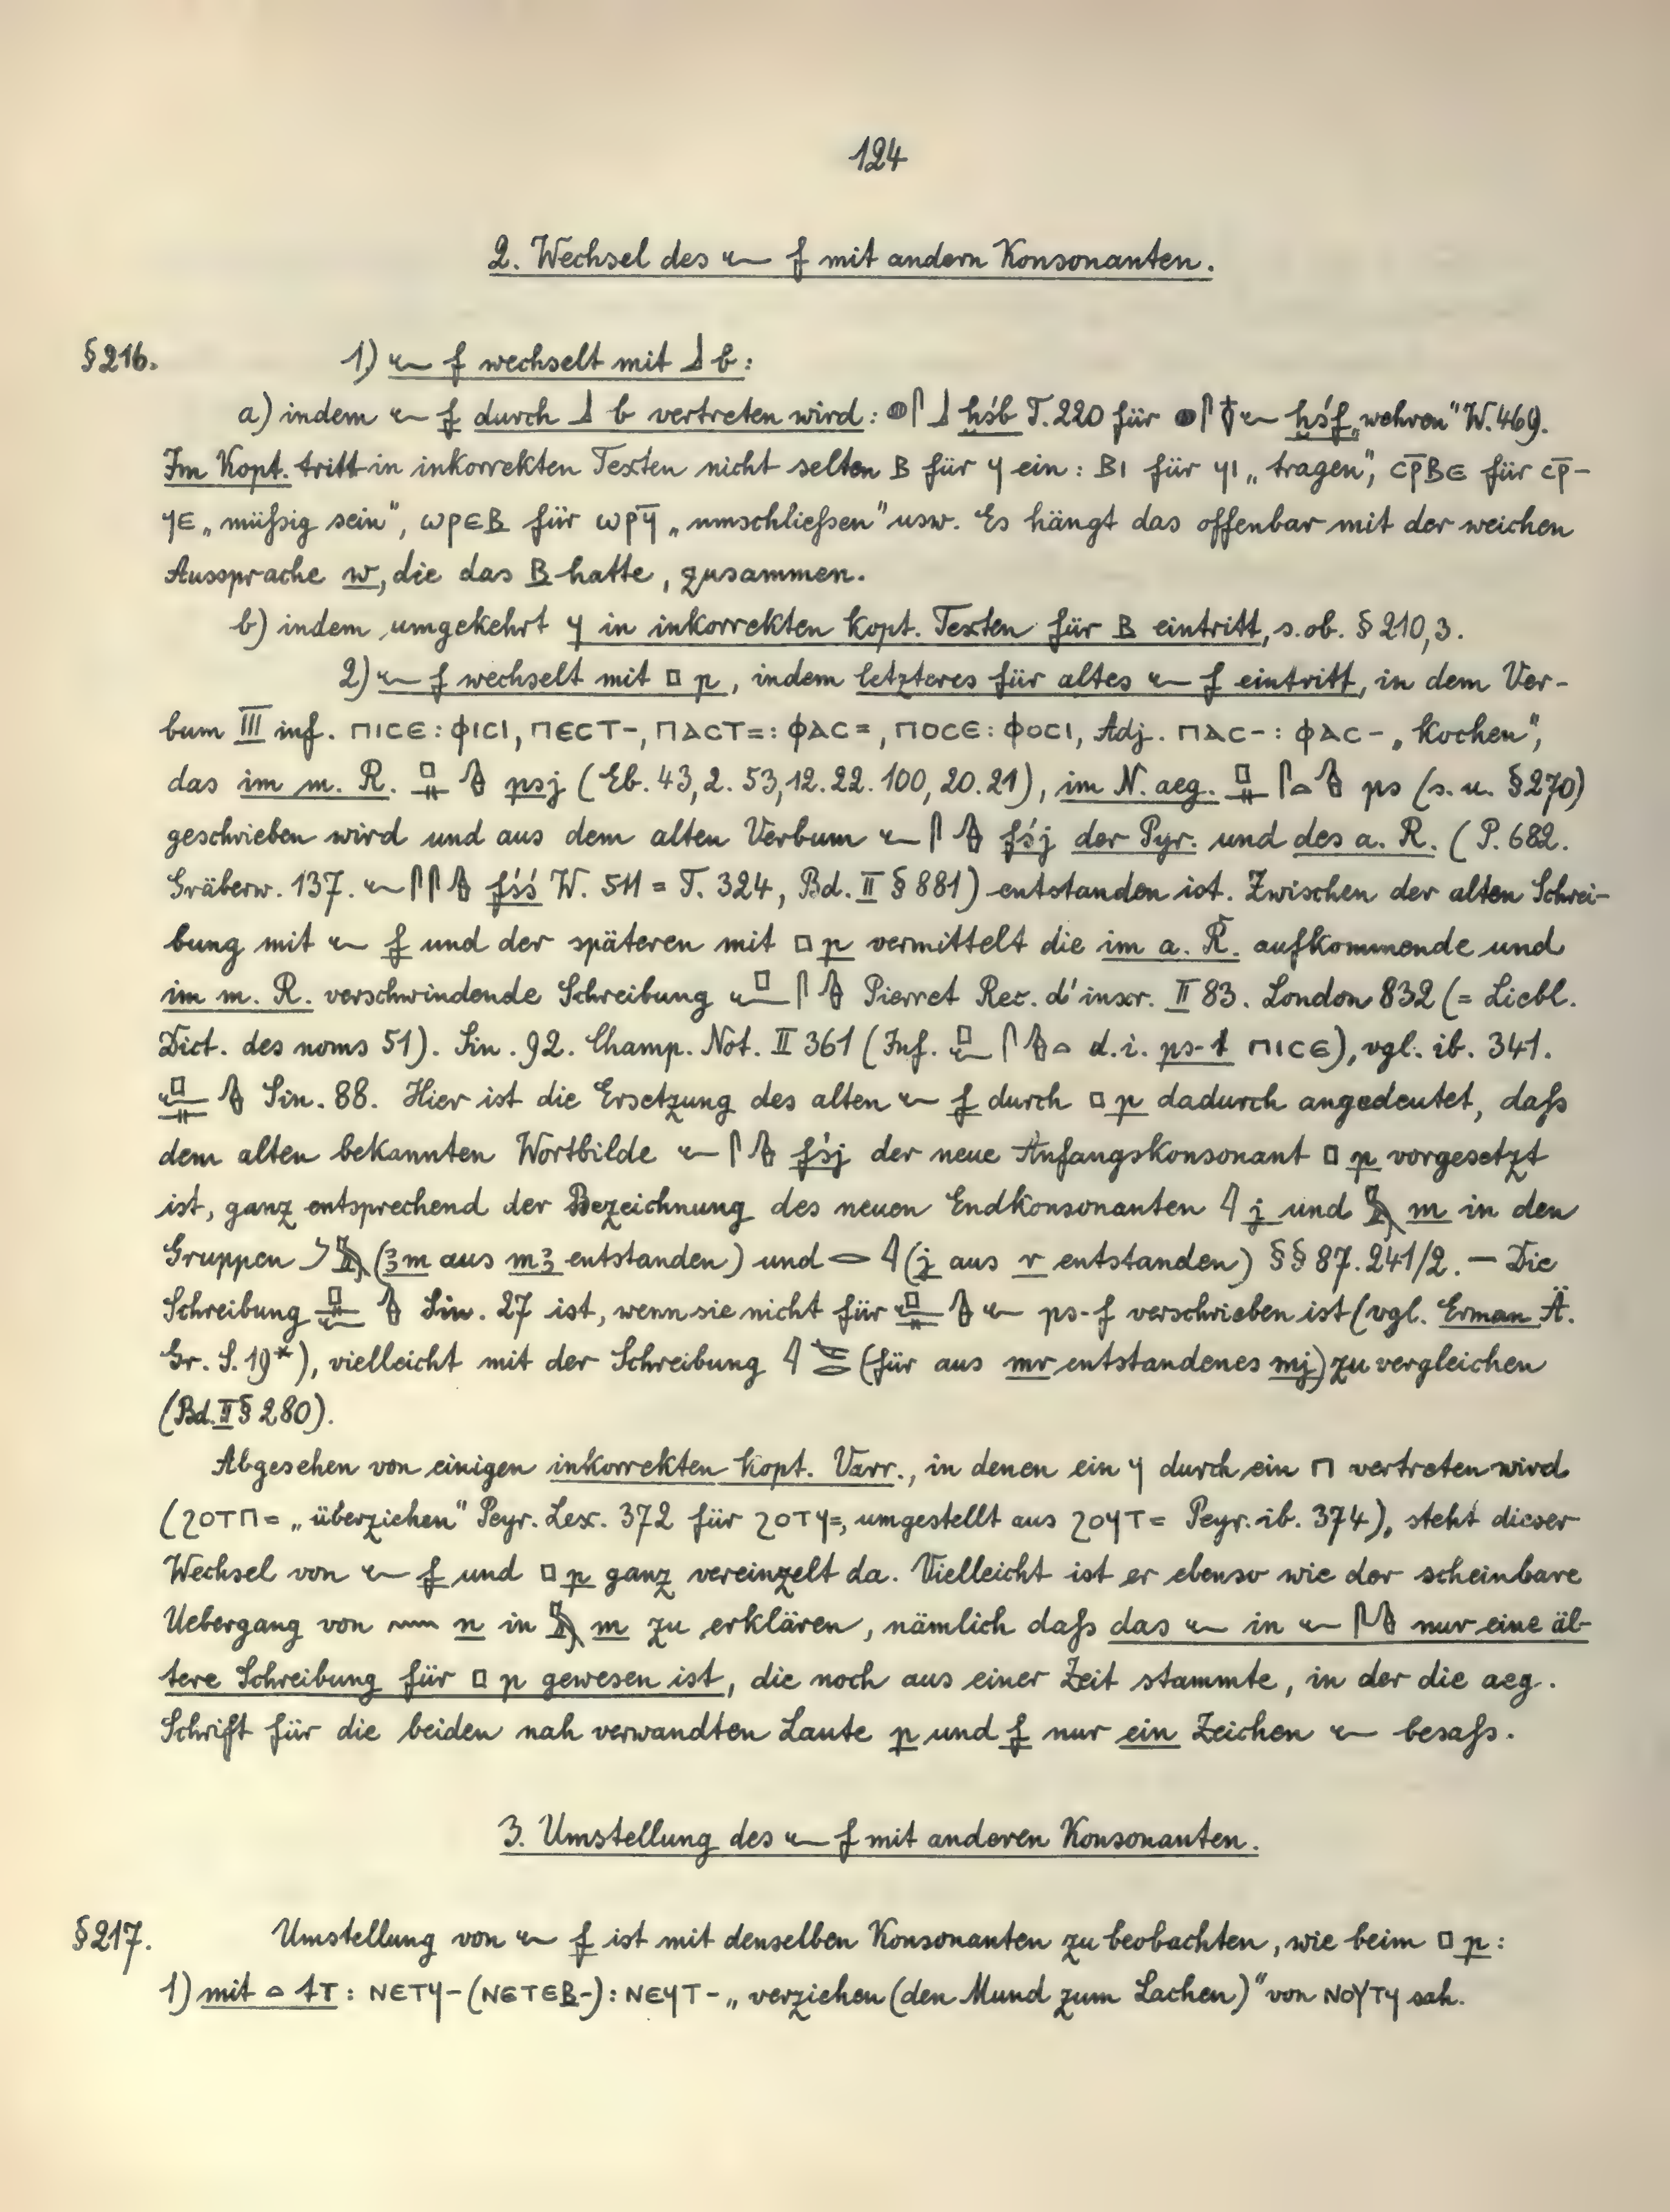 124
2. Wechsel des 𓆑 f mit andern Konsonanten.
§216. 1) 𓆑 f wechselt mit 𓃀 b:
a) indem 𓆑 f durch 𓃀 b vertreten wird: 𓐍𓋴𓃀 ḫśb T. 220 für 𓐍𓋴𓆑 ḫśf „wehren" W. 469.
Im Kopt. tritt in inkorrekten Texten nicht selten ⲃ für ϥ ein: ⲃⲓ für ϥⲓ „tragen", ⲥⲣ̄ⲃⲉ für ⲥⲣ̄-
ϥⲉ „müßig sein", ⲱⲣⲉⲃ für ⲱⲣϥ̄ „umschließen" usw. Es hängt das offenbar mit der weichen
Aussprache w, die das ⲃ hatte, zusammen.
b) indem umgekehrt ϥ in inkorrekten kopt. Texten für ⲃ eintritt, s. ob. § 210,3.
2) 𓆑 f wechselt mit 𓊪 p, indem letzteres für altes 𓆑 f eintritt, in dem Ver-
bum III inf. ⲡⲓⲥⲉ: ⲫⲓⲥⲓ, ⲡⲉⲥⲧ-, ⲡⲁⲥⲧ=: ⲫⲁⲥ=, ⲡⲟⲥⲉ: ⲫⲟⲥⲓ, Adj. ⲡⲁⲥ-: ⲫⲁⲥ- „Kochen",
das im m. R. 𓊪𓊃𓊮 psj (Eb. 43,2. 53,12. 22. 100, 20. 21), im N. aeg. 𓊪𓊃𓋴𓏏𓊮 ps (s. u. §270)
geschrieben wird und aus dem alten Verbum 𓆑𓋴𓊮 fśj der Pyr. und des a. R. (P. 682.
Gräberw. 137. 𓆑𓋴𓋴𓊮 fśś W. 511 = T. 324, Bd. II § 881) entstanden ist. Zwischen der alten Schrei-
bung mit 𓆑 f und der späteren mit 𓊪 p vermittelt die im a. R. aufkommende und
im m. R. verschwindende Schreibung 𓊪𓆑𓋴𓊮 Pierret Rec. d'inscr. II 83. London 832 (= Liebl.
Dict. des noms 51). Sin. 92. Champ. Not. II 361 (Inf. 𓊪𓆑𓋴𓊮𓏏 d. i. ps-t ⲡⲓⲥⲉ), vgl. ib. 341.
𓊪𓆑𓊃𓊮 Sin. 88. Hier ist die Ersetzung des alten 𓆑 f durch 𓊪 p dadurch angedeutet, daß
dem alten bekannten Wortbilde 𓆑𓋴𓊮 fśj der neue Anfangskonsonant 𓊪 p vorgesetzt
ist, ganz entsprechend der Bezeichnung des neuen Endkonsonanten 𓇋 j und 𓅓 m in den
Gruppen 𓌳𓅓 (ꜣm aus mꜣ entstanden) und 𓂋𓇋 (j aus r entstanden) §§ 87. 241/2. — Die
Schreibung 𓊪𓊃𓆑𓊮 Sin. 27 ist, wenn sie nicht für 𓊪𓆑𓊃𓊮𓆑 ps-f verschrieben ist (vgl. Erman Ä.
Gr. S. 19*), vielleicht mit der Schreibung 𓇋𓌸𓂋 (für aus mr entstandenes mj) zu vergleichen
(Bd. II § 280).
Abgesehen von einigen inkorrekten kopt. Varr., in denen ein ϥ durch ein ⲡ vertreten wird
(ϩⲟⲧⲡ= „überziehen" Peyr. Lex. 372 für ϩⲟⲧϥ=, umgestellt aus ϩⲟϥⲧ= Peyr. ib. 374), steht dieser
Wechsel von 𓆑 f und 𓊪 p ganz vereinzelt da. Vielleicht ist er ebenso wie der scheinbare
Uebergang von 𓈖 n in 𓅓 m zu erklären, nämlich daß das 𓆑 in 𓆑𓋴𓊮 nur eine äl-
tere Schreibung für 𓊪 p gewesen ist, die noch aus einer Zeit stammte, in der die aeg.
Schrift für die beiden nah verwandten Laute p und f nur ein Zeichen 𓆑 besaß.
3. Umstellung des 𓆑 f mit anderen Konsonanten.
§217. Umstellung von 𓆑 f ist mit denselben Konsonanten zu beobachten, wie beim 𓊪 p:
1) mit 𓏏 t ⲧ: ⲛⲉⲧϥ- (ⲛⲉⲧⲉⲃ-): ⲛⲉϥⲧ- „verziehen (den Mund zum Lachen)" von ⲛⲟⲩⲧϥ sah.